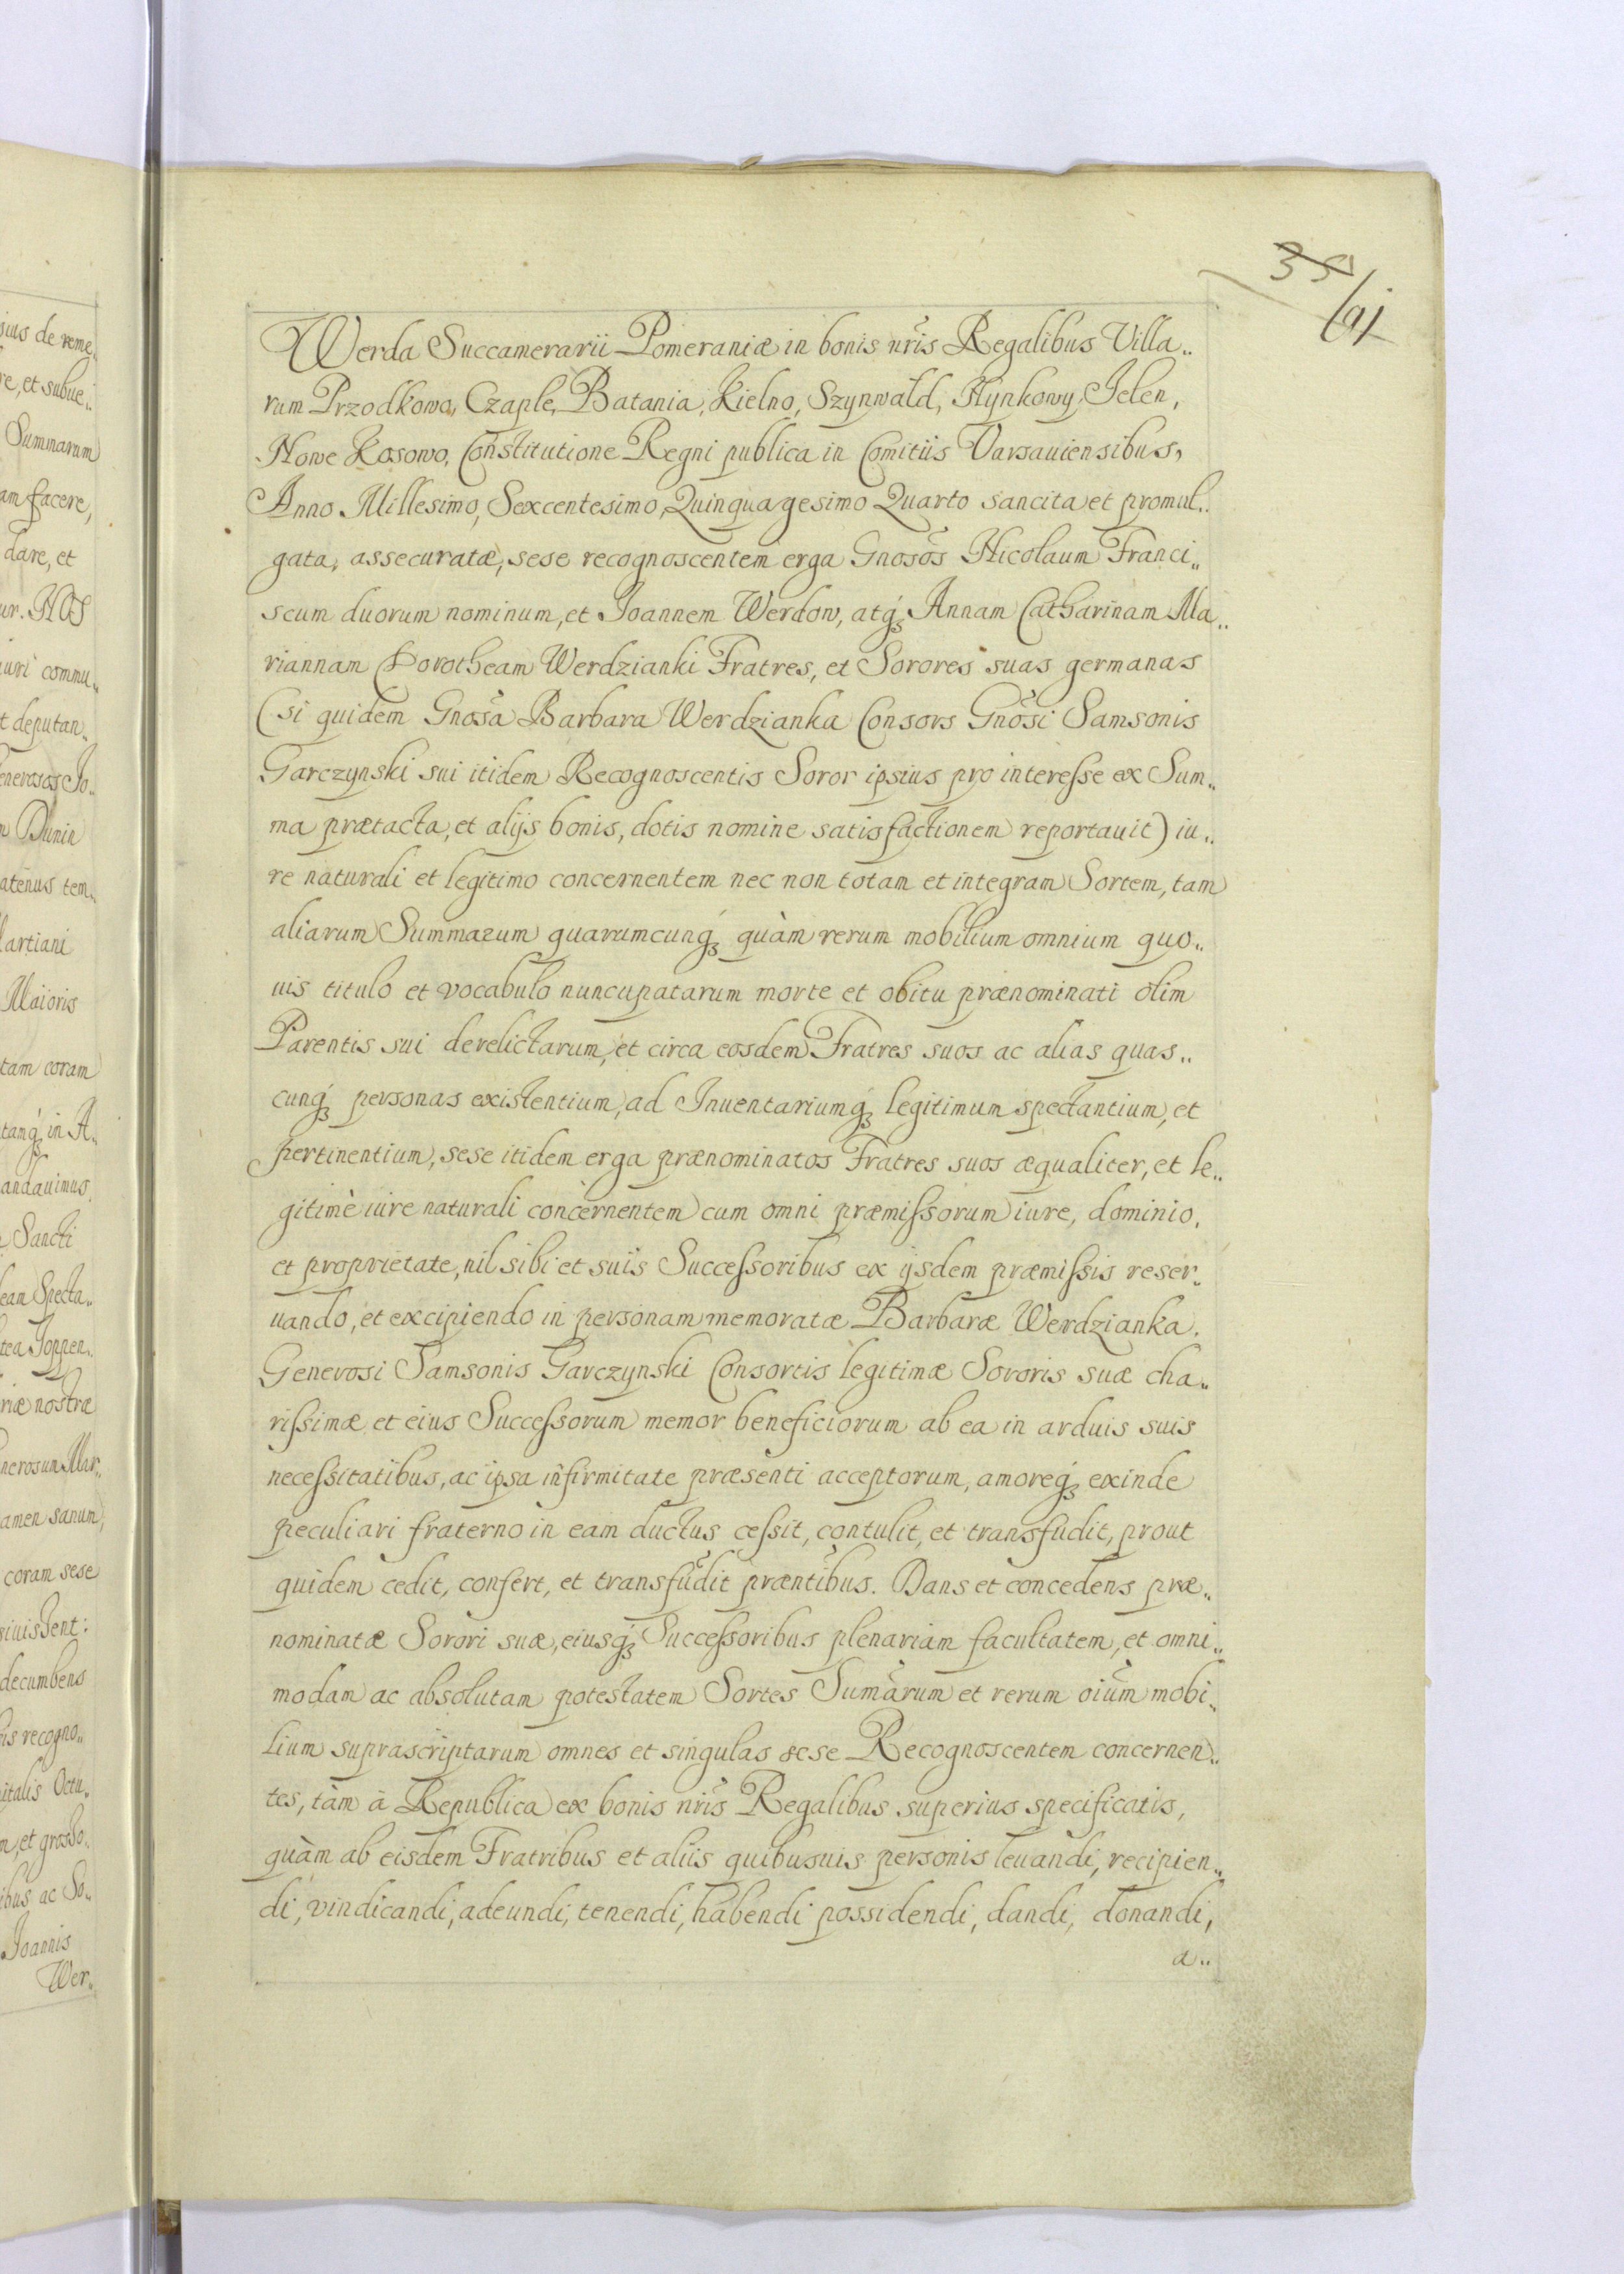 35
61
Werda Succamerarii Pomeraniæ in bonis nr̃is Regalibus Villa..
rum Przodkowo, Czaple, Batania, Kielno, Szynwałd, Hynkowy, Jelen,
Nowe Kosowo, Constitutione Regni publica in Comitiis Varsauiensibus,
Anno Millesimo, Sexcentesimo, Quinquagesimo Quarto sancita et promul..
gata, assecuratæ, sese recognoscentem erga Gnosos̃ Nicolaum Franci..
scum duorum nominum, et Joannem Werdow, atq́ꝫ Annam Catharinam Ma..
riannam Dorotheam Werdzianki Fratres, et Sorores suas germanas
(si quidem Gnosã Barbara Werdzianka Consors Gnõsi Samsonis
Garczynski sui itidem Recognoscentis Soror ipsius pro interesse ex Sum..
ma prætacta, et alijs bonis, dotis nomine satisfactionem reportauit) iu..
re naturali et legitimo concernentem nec non totam et integram Sortem, tam
aliarum Summarum quarumcunq́ꝫ quàm rerum mobilium omnium quo..
uis titulo et vocabulo nuncupatarum morte et obitu prænominati olim
Parentis sui derelictarum, et circa eosdem Fratres suos ac alias quas..
cunq́ꝫ personas existentium, ad Inuentariumq́ꝫ legitimum spectantium, et
pertinentium, sese itidem erga prænominatos Fratres suos æqualiter, et le..
gitimè iure naturali concernentem cum omni præmissorum iure, dominio,
et proprietate, nil sibi et suis Successoribus ex ijsdem præmissis reser..
uando, et excipiendo in personam memoratæ Barbaræ Werdzianka.
Generosi Samsonis Garczynski Consortis legitimæ Sororis suæ cha..
rissimæ et eius Successorum memor beneficiorum ab ea in arduis suis
necessitatibus, ac ipsa infirmitate præsenti acceptorum, amoreq́ꝫ exinde
peculiari fraterno in eam ductus cessit, contulit, et transfudit, prout
quidem cedit, confert, et transfudit præntĩbus. Dans et concedens præ..
nominatæ Sorori suæ, eiusq́ꝫ Successoribus plenariam facultatem, et omni..
modam ac absolutam potestatem Sortes Sumãrum et rerum oiũm mobi..
lium suprascriptarum omnes et singulas sese Recognoscentem concernen..
tes, tàm à Republica ex bonis nr̃is Regalibus superius specificatis,
quàm ab eisdem Fratribus et aliis quibusuis personis leuandi, recipien..
di, vindicandi, adeundi, tenendi, habendi possidendi, dandi, donandi,
a..